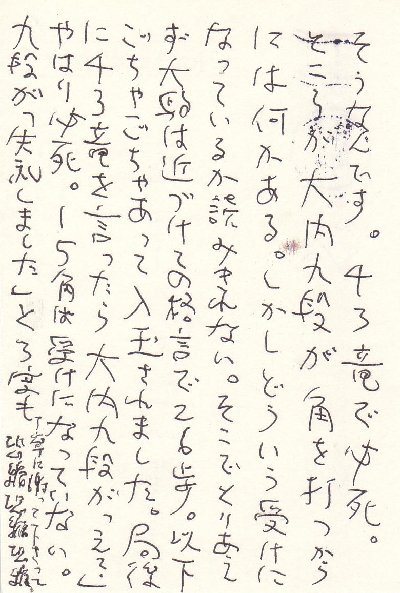 そうなんです。43竜で必死。
ところが大内九段が角を打つから
には何かある。しかしどういう受けに
なっているか読みきれない。そこでとりあえ
ず大駒は近づけての格言で26歩。以下
ごちゃごちゃあって入玉されました。局後
に43竜を言ったら大内九段が「えっ」
やはり必死。15角は受けになっていない。
九段が「失礼しました」とろ実も
丁寧に謝って下さって
恐縮恐縮恐縮